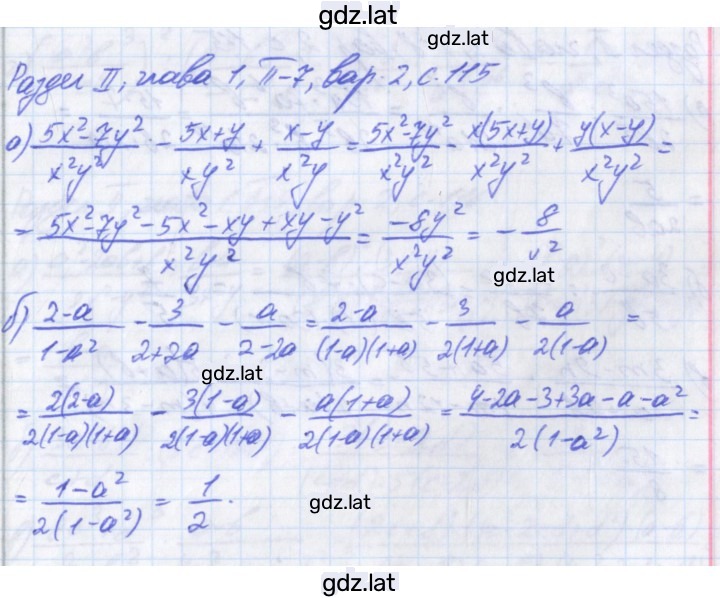 gdz.lat
gdz.lat
Раздел II, глава 1, П-7, вар. 2, с. 115
а) (5x²-7y²)/(x²y²) - (5x+y)/(xy²) + (x-y)/(x²y) = (5x²-7y²)/(x²y²) - (x(5x+y))/(x²y²) + (y(x-y))/(x²y²) =
= (5x²-7y²-5x²-xy+xy-y²)/(x²y²) = (-8y²)/(x²y²) = - 8/x²
gdz.lat
б) (2-a)/(1-a²) - 3/(2+2a) - a/(2-2a) = (2-a)/((1-a)(1+a)) - 3/(2(1+a)) - a/(2(1-a)) =
gdz.lat
= (2(2-a))/(2(1-a)(1+a)) - (3(1-a))/(2(1-a)(1+a)) - (a(1+a))/(2(1-a)(1+a)) = (4-2a-3+3a-a-a²)/(2(1-a²)) =
= (1-a²)/(2(1-a²)) = 1/2.
gdz.lat
gdz.lat